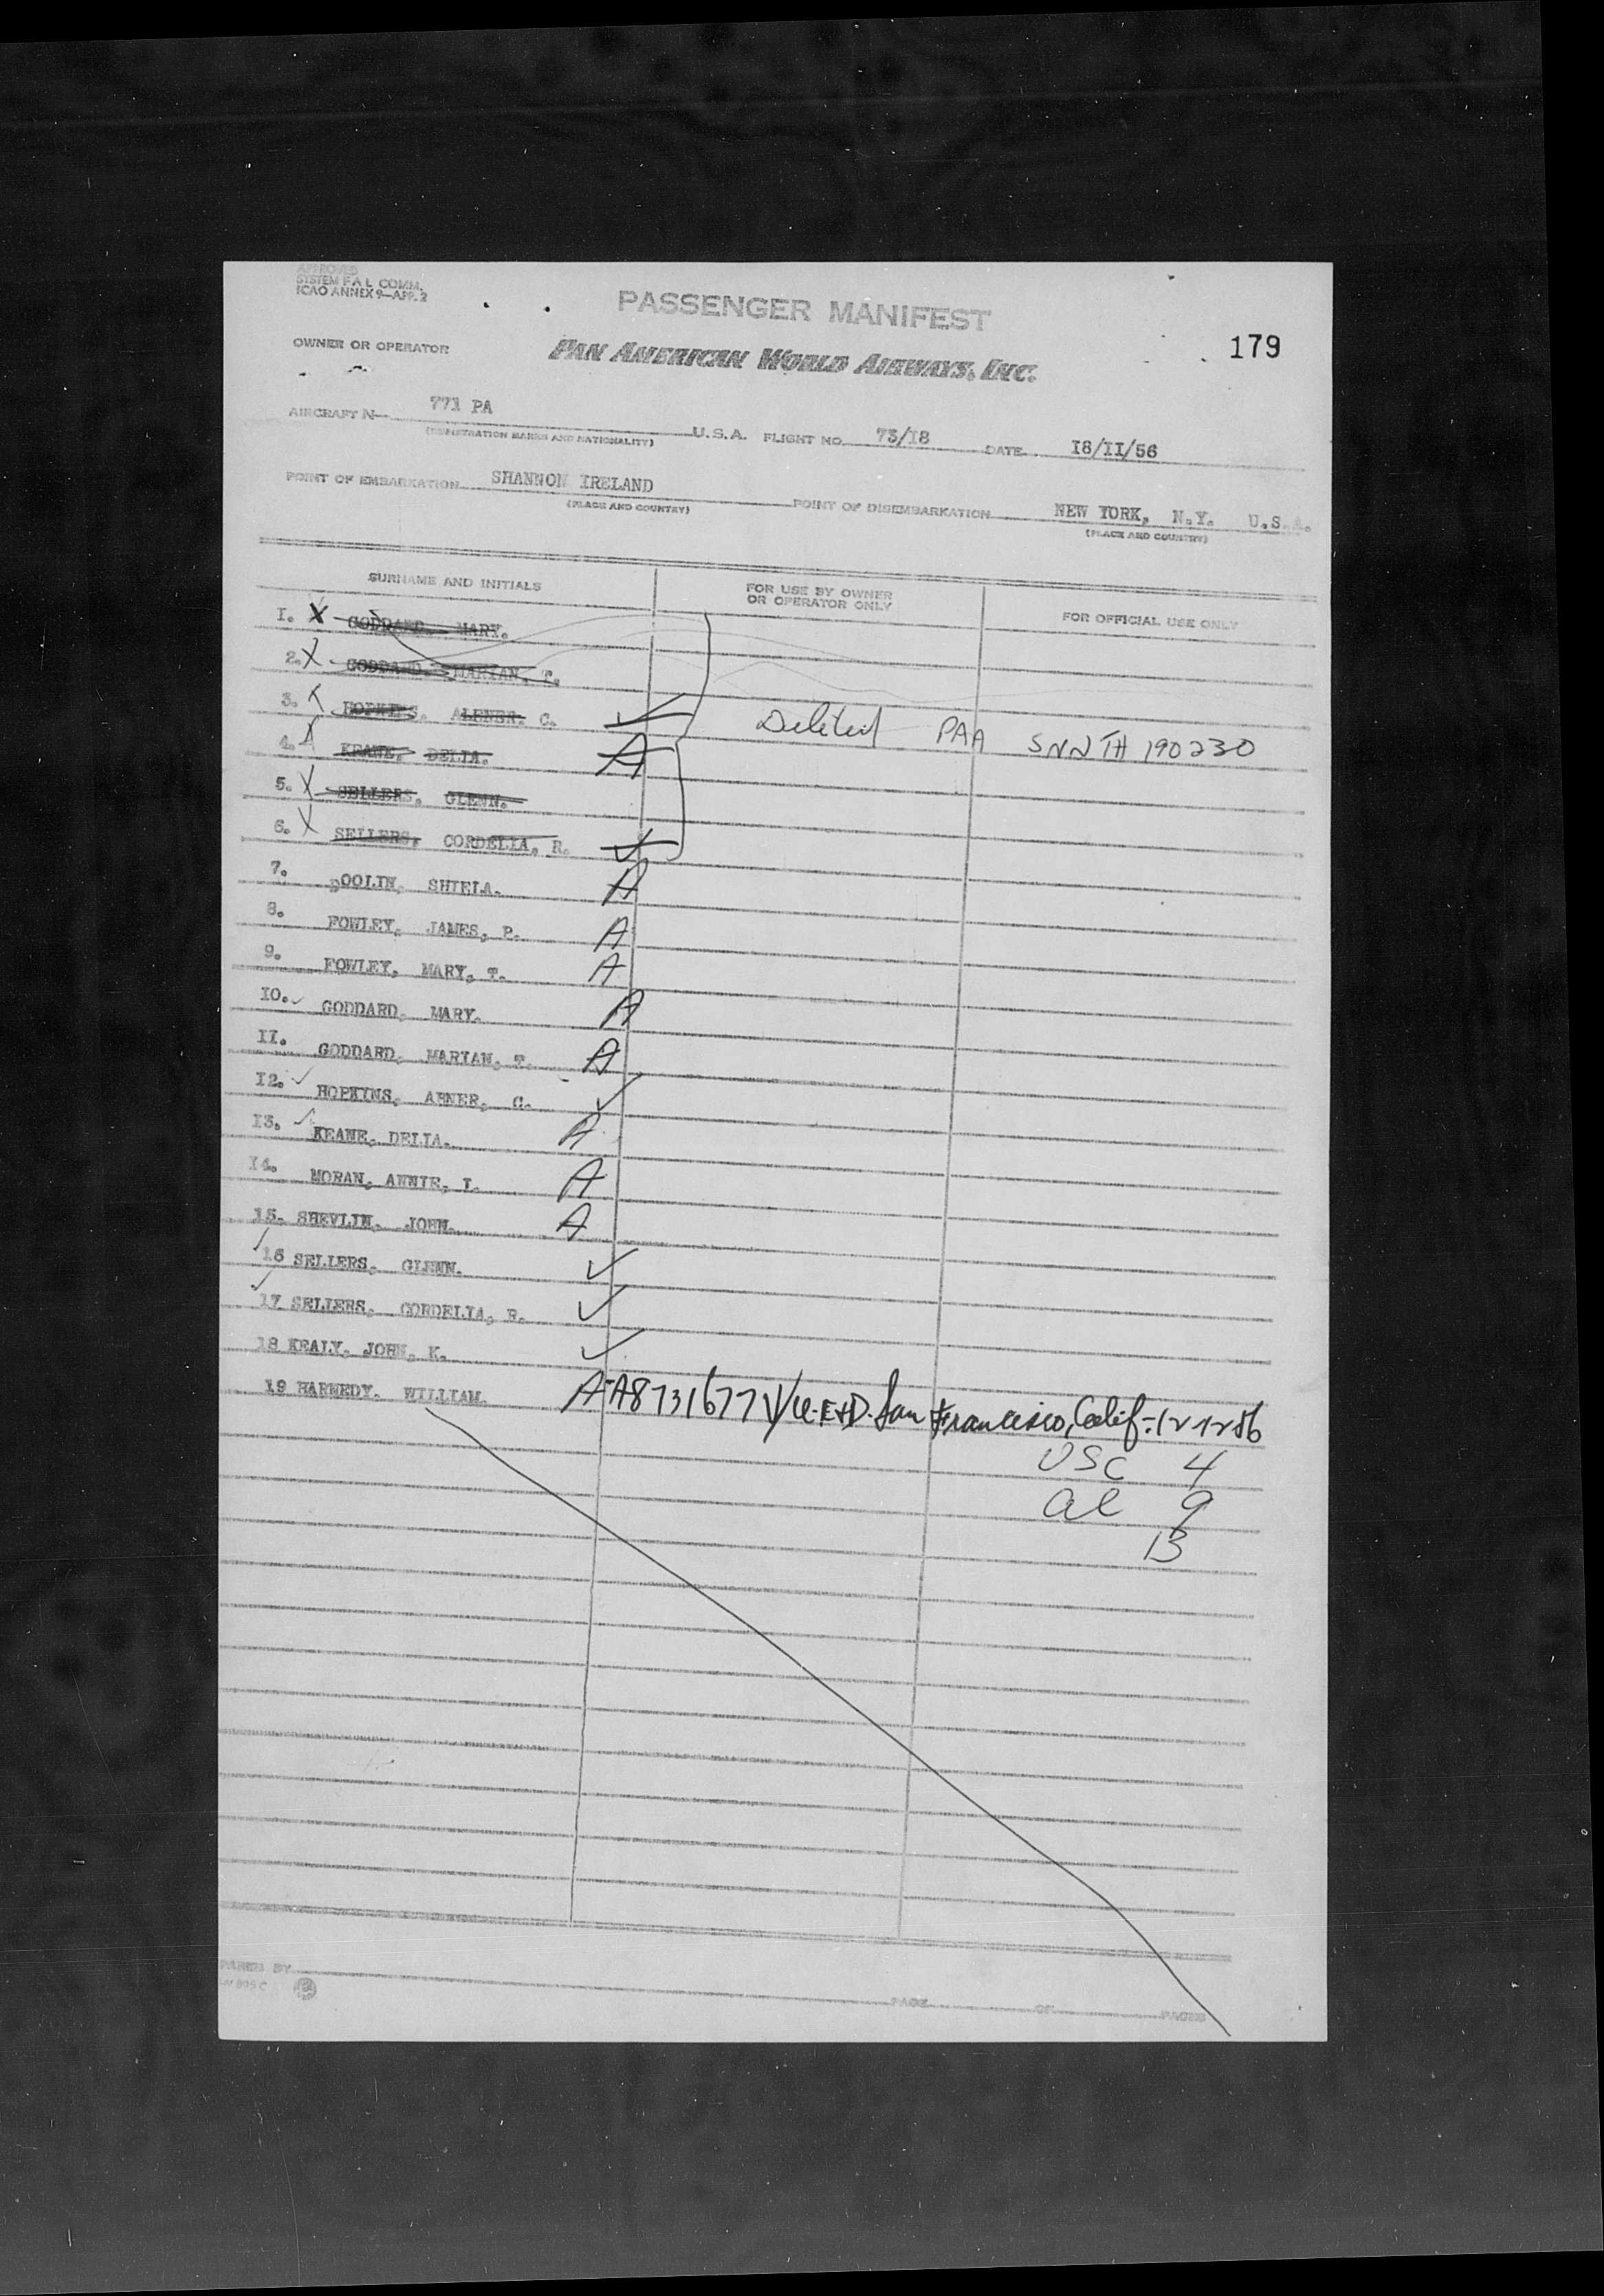 APPROVED
SYSTEM F A L COMM.
ICAO ANNEX 9—APP. 2
PASSENGER MANIFEST
179
OWNER OR OPERATOR
PAN AMERICAN WORLD AIRWAYS, INC.
AIRCRAFT N— 771 PA U.S.A. FLIGHT NO. 73/I8 DATE I8/II/56
(REGISTRATION MARKS AND NATIONALITY)
POINT OF EMBARKATION SHANNON IRELAND POINT OF DISEMBARKATION NEW YORK, N.Y. U.S.A.
(PLACE AND COUNTRY) (PLACE AND COUNTRY)
SURNAME AND INITIALS FOR USE BY OWNER OR OPERATOR ONLY FOR OFFICIAL USE ONLY
I. X GODDARD. MARY.
2. X GODDARD. MARIAN, T.
3. HOPKINS, C.
Deleted PAA SNN TH 190230
4. KEANE, DELIA. A
5. X SELLERS, GLENN.
6. X SELLERS, CORDELIA, R. ✓
7. DOOLIN, SHIELA. A
8. FOWLEY, JAMES, P. A
9. FOWLEY, MARY, T. A
IO. ✓ GODDARD, MARY. A
II. GODDARD, MARIAN, T. A
I2. ✓ HOPKINS, ABNER, C. ✓
I3. ✓ KEANE, DELIA. A
I4. MORAN, ANNIE, I. A
15. SHEVLIN, JOHN. A
✓ 16 SELLERS, GLENN. ✓
✓ 17 SELLERS, CORDELIA, R. ✓
18 KEALY, JOHN, K. ✓
19 HARNEDY. WILLIAM. A-A8731677 San Francisco, Calif.
USC 4
al 9
13
PARED BY
PAGE OF PAGES